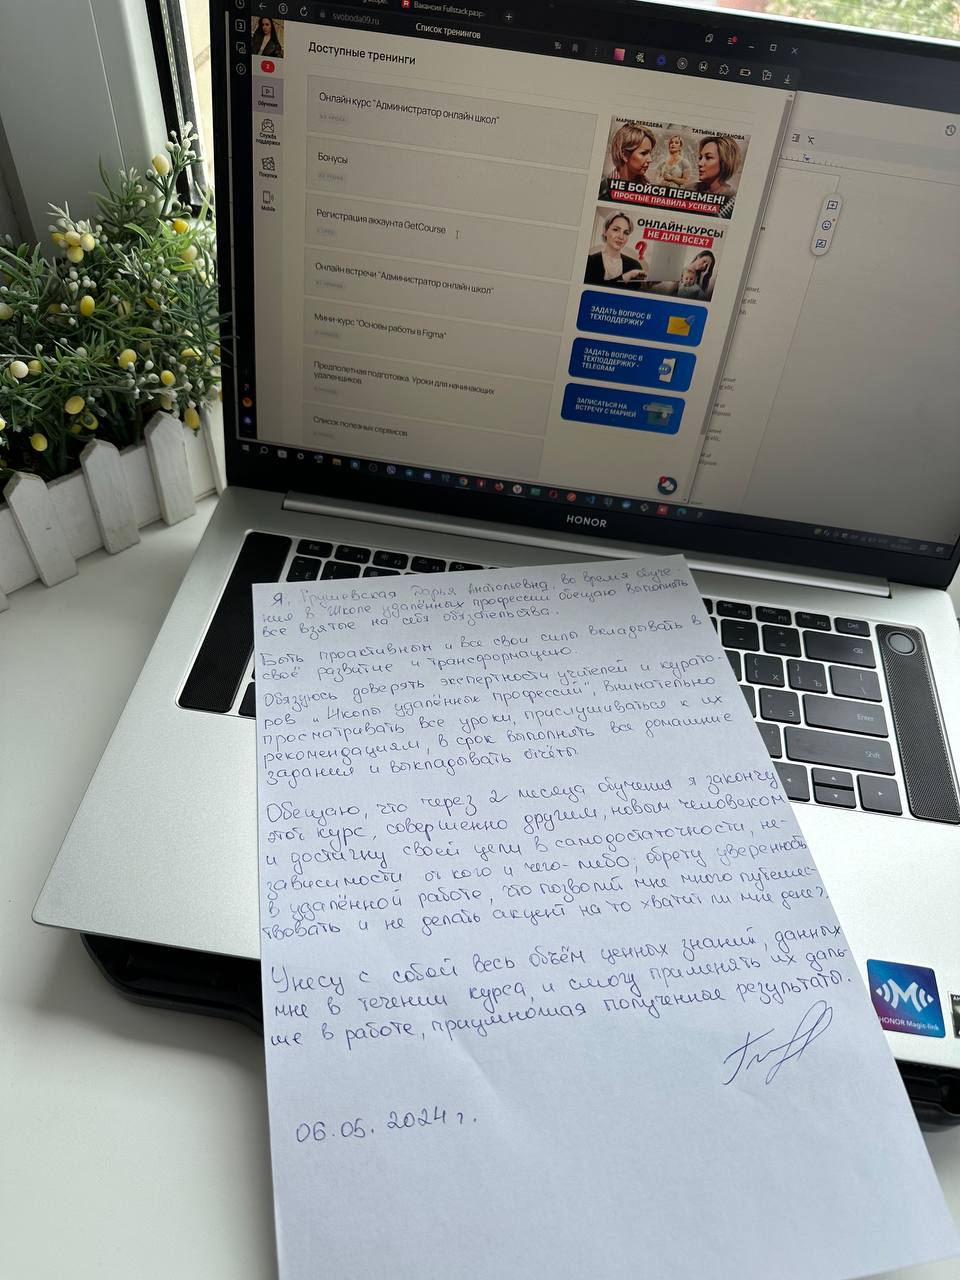 Вакансия Fullstack
svoboda09.ru
Список тренингов
Доступные тренинги
Онлайн курс "Администратор онлайн школ"
Бонусы
Регистрация аккаунта GetCourse
Онлайн встречи "Администратор онлайн школ"
Мини-курс "Основы работы в Figma"
Предполетная подготовка. Уроки для начинающих
удаленщиков
Список полезных сервисов
2
Обучение
Служба
поддержки
Покупки
Mobile
МАРИЯ ЛЕБЕДЕВА ТАТЬЯНА БУЛАНОВА
НЕ БОЙСЯ ПЕРЕМЕН!
ПРОСТЫЕ ПРАВИЛА УСПЕХА
ОНЛАЙН-КУРСЫ
НЕ ДЛЯ ВСЕХ?
ЗАДАТЬ ВОПРОС В
ТЕХПОДДЕРЖКУ
ЗАДАТЬ ВОПРОС В
ТЕХПОДДЕРЖКУ -
TELEGRAM
ЗАПИСАТЬСЯ НА
ВСТРЕЧУ С МАРИЕЙ
HONOR
Esc
Enter
Shift
Я, Грушевская Дарья Анатольевна, во время обуче-
ния в Школе удалённых профессий обещаю выполнять
все взятые на себя обязательства.
Быть проактивным и все свои силы вкладывать в
своё развитие и трансформацию.
Обязуюсь доверять экспертности учителей и курато-
ров "Школы удалённых профессий", внимательно
просматривать все уроки, прислушиваться к их
рекомендациям, в срок выполнять все домашние
задания и выкладывать отчёты.
Обещаю, что через 2 месяца обучения я закончу
этот курс, совершенно другим, новым человеком
и достигну своей цели в самодостаточности, не-
зависимости от кого и чего-либо; обрету уверенность
в удалённой работе, что позволит мне много путешес-
твовать и не делать акцент на то хватит ли мне денег.
Унесу с собой весь объём ценных знаний, данных
мне в течении курса, и смогу применять их даль-
ше в работе, приумножая полученные результаты.
06.05.2024 г.
HONOR Magic-link